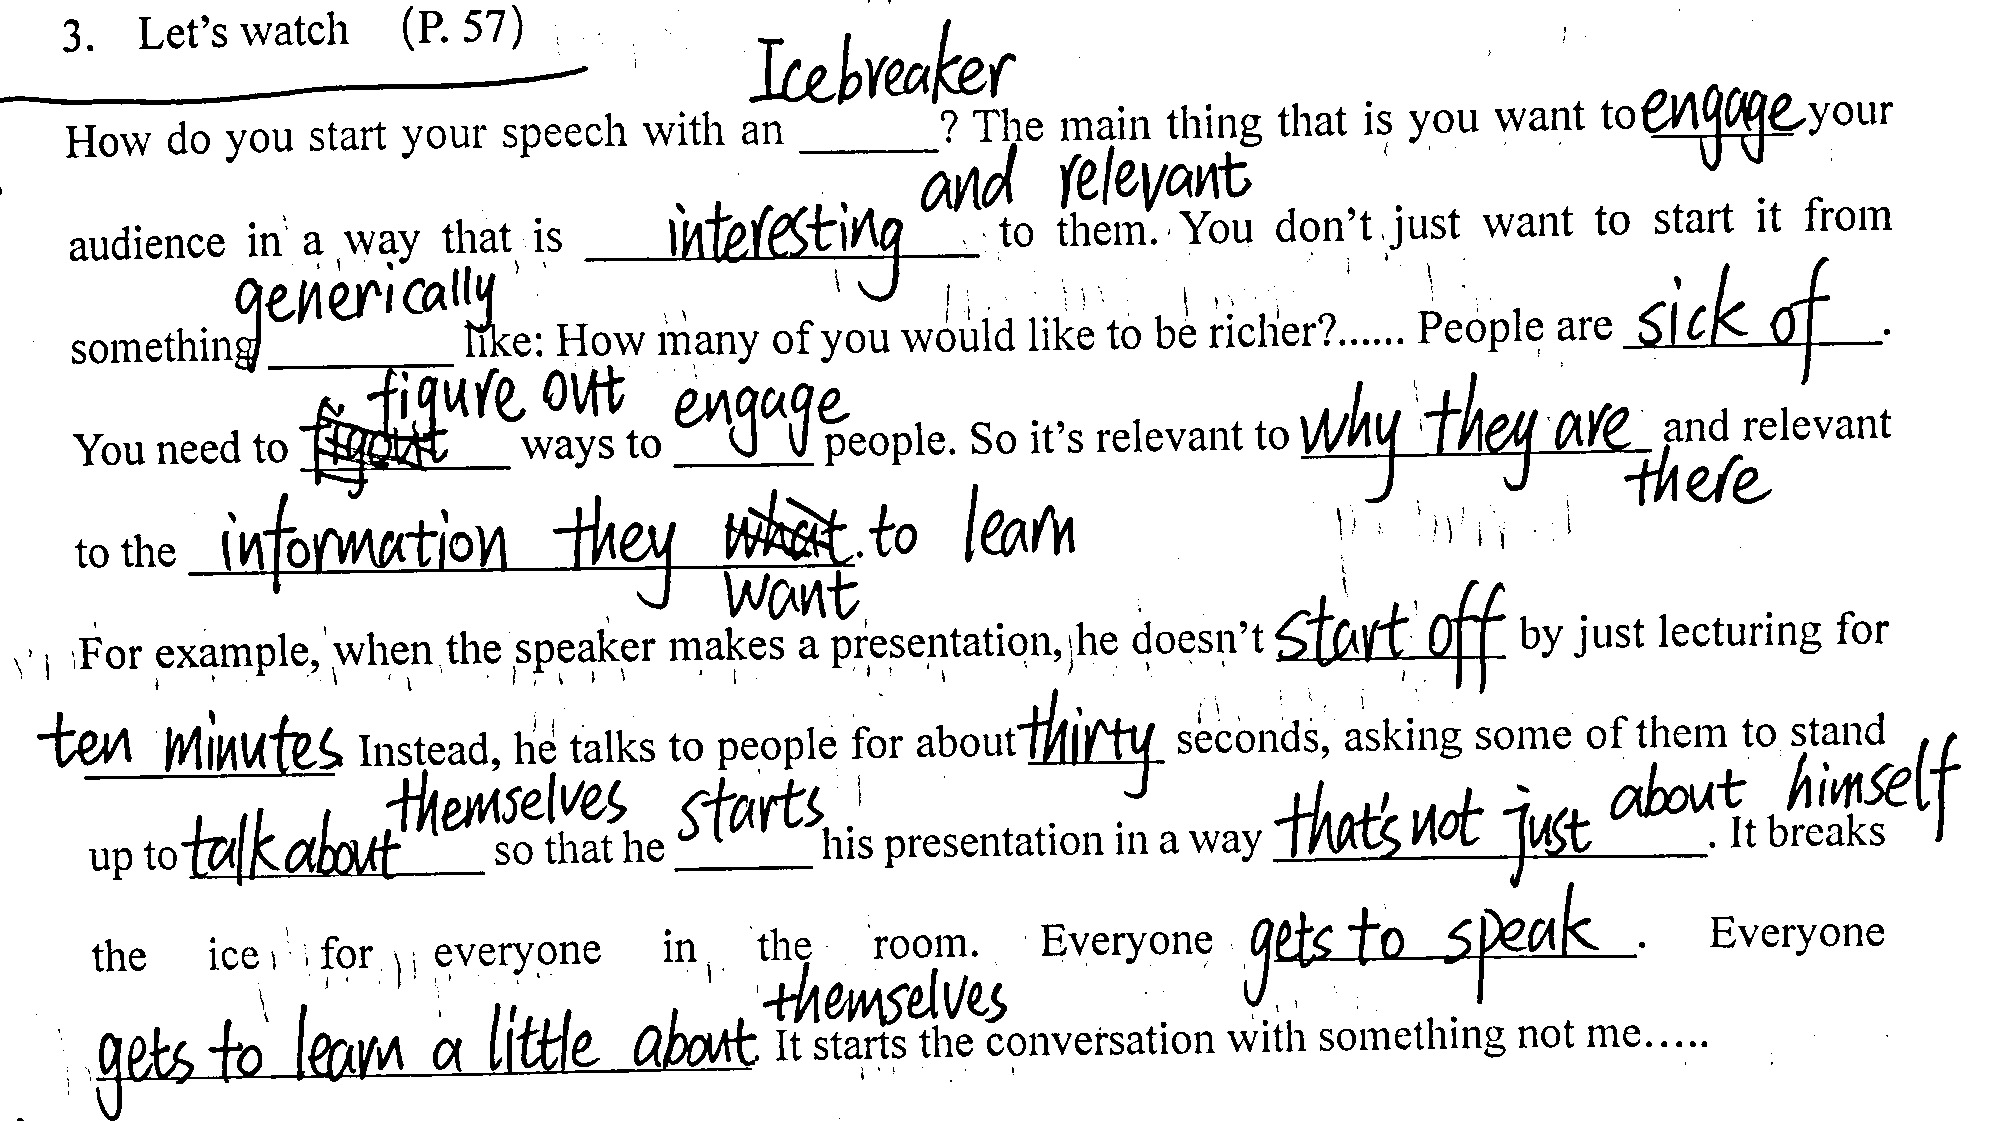 3. Let's watch (P. 57)
How do you start your speech with an Icebreaker ? The main thing that is you want to engage your
audience in a way that is interesting and relevant to them. You don't just want to start it from
something generically like: How many of you would like to be richer?...... People are sick of .
You need to figure out ways to engage people. So it's relevant to why they are there and relevant
to the information they want to learn
For example, when the speaker makes a presentation, he doesn't start off by just lecturing for
ten minutes Instead, he talks to people for about thirty seconds, asking some of them to stand
up to talk about themselves so that he starts his presentation in a way that's not just about himself . It breaks
the ice for everyone in the room. Everyone gets to speak . Everyone
gets to learn a little about themselves It starts the conversation with something not me.....